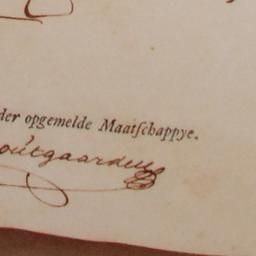 der opgemelde Maatſchappye.
outgaarden